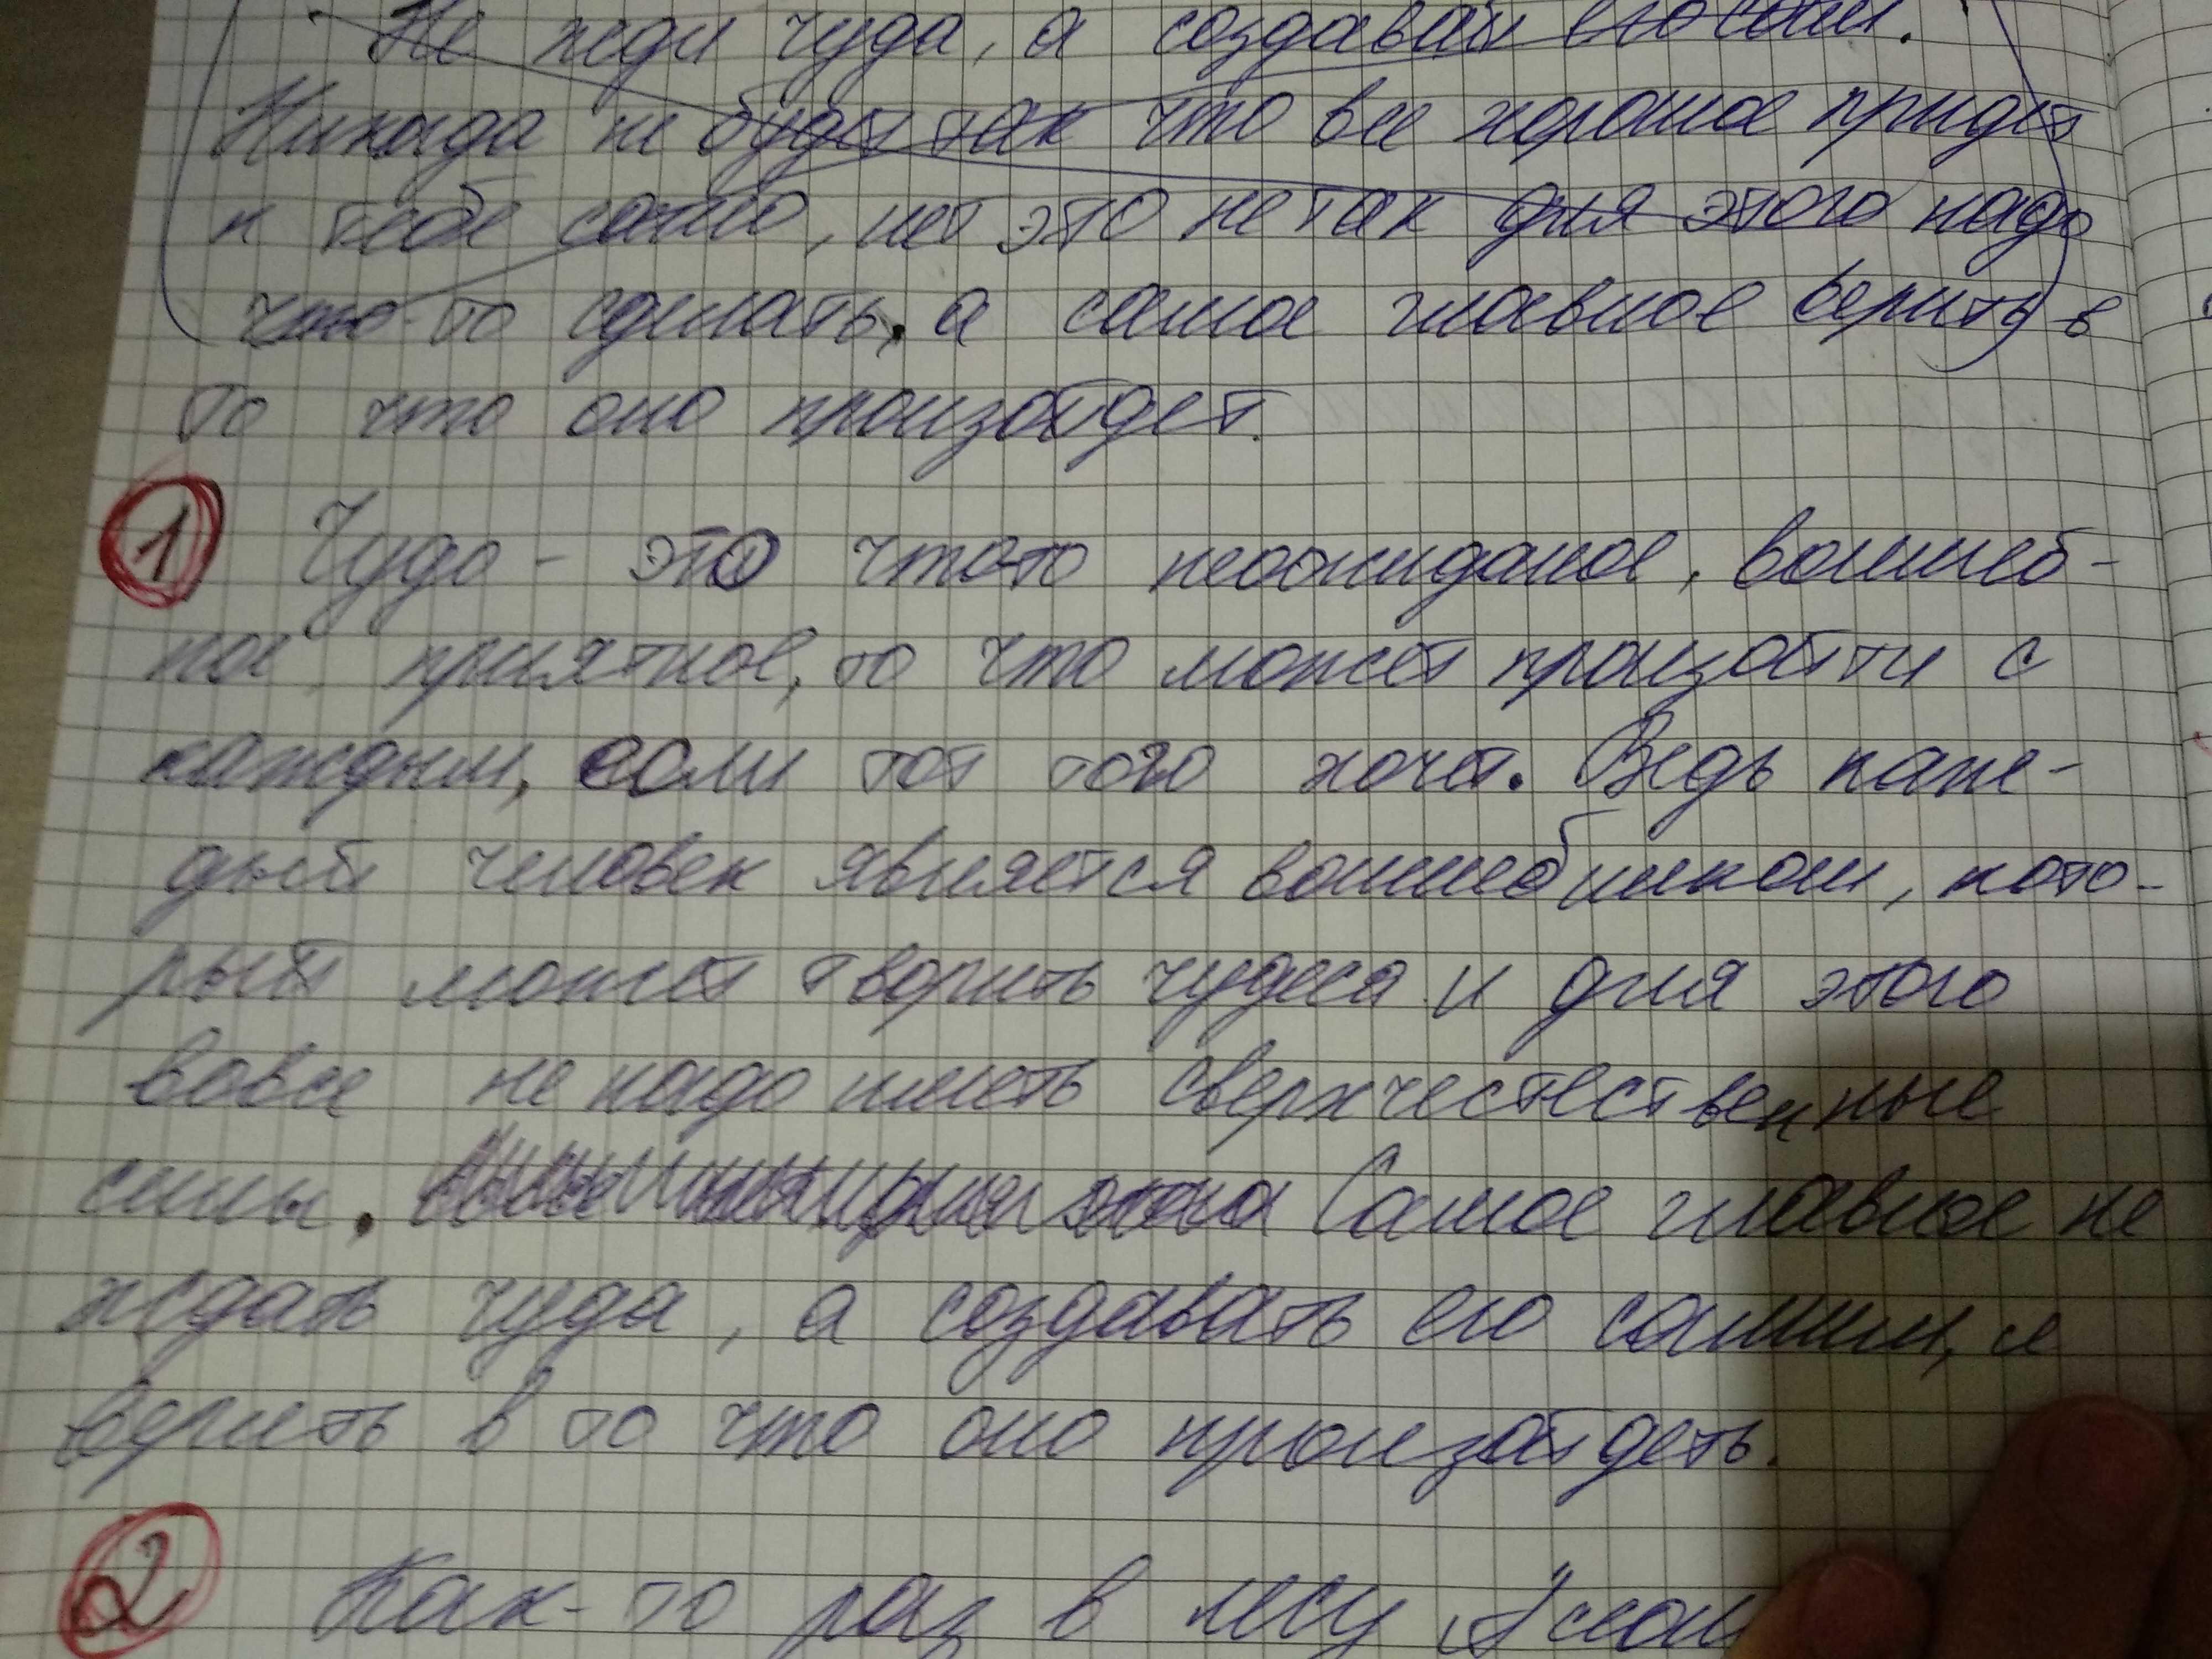 Не жди чуда, а создавай его сам.
Никогда не будет так что все хорошое придет
к тебе само, нет это не так для этого надо
что-то сделать, а самое главное верить в
то что оно произойдет.
1 Чудо - это что-то неожиданое, волшеб-
ное приятное, то что может произойти с
каждым, если тот того хочет. Ведь каж-
дый человек является волшебником, кото-
рый может творить чудеса и для этого
вовсе не надо иметь сверхчестественные
силы. Самое главное не
ждать чуда, а создавать его самим, и
верить в то что оно произойдеть.
2 Как-то раз в лесу